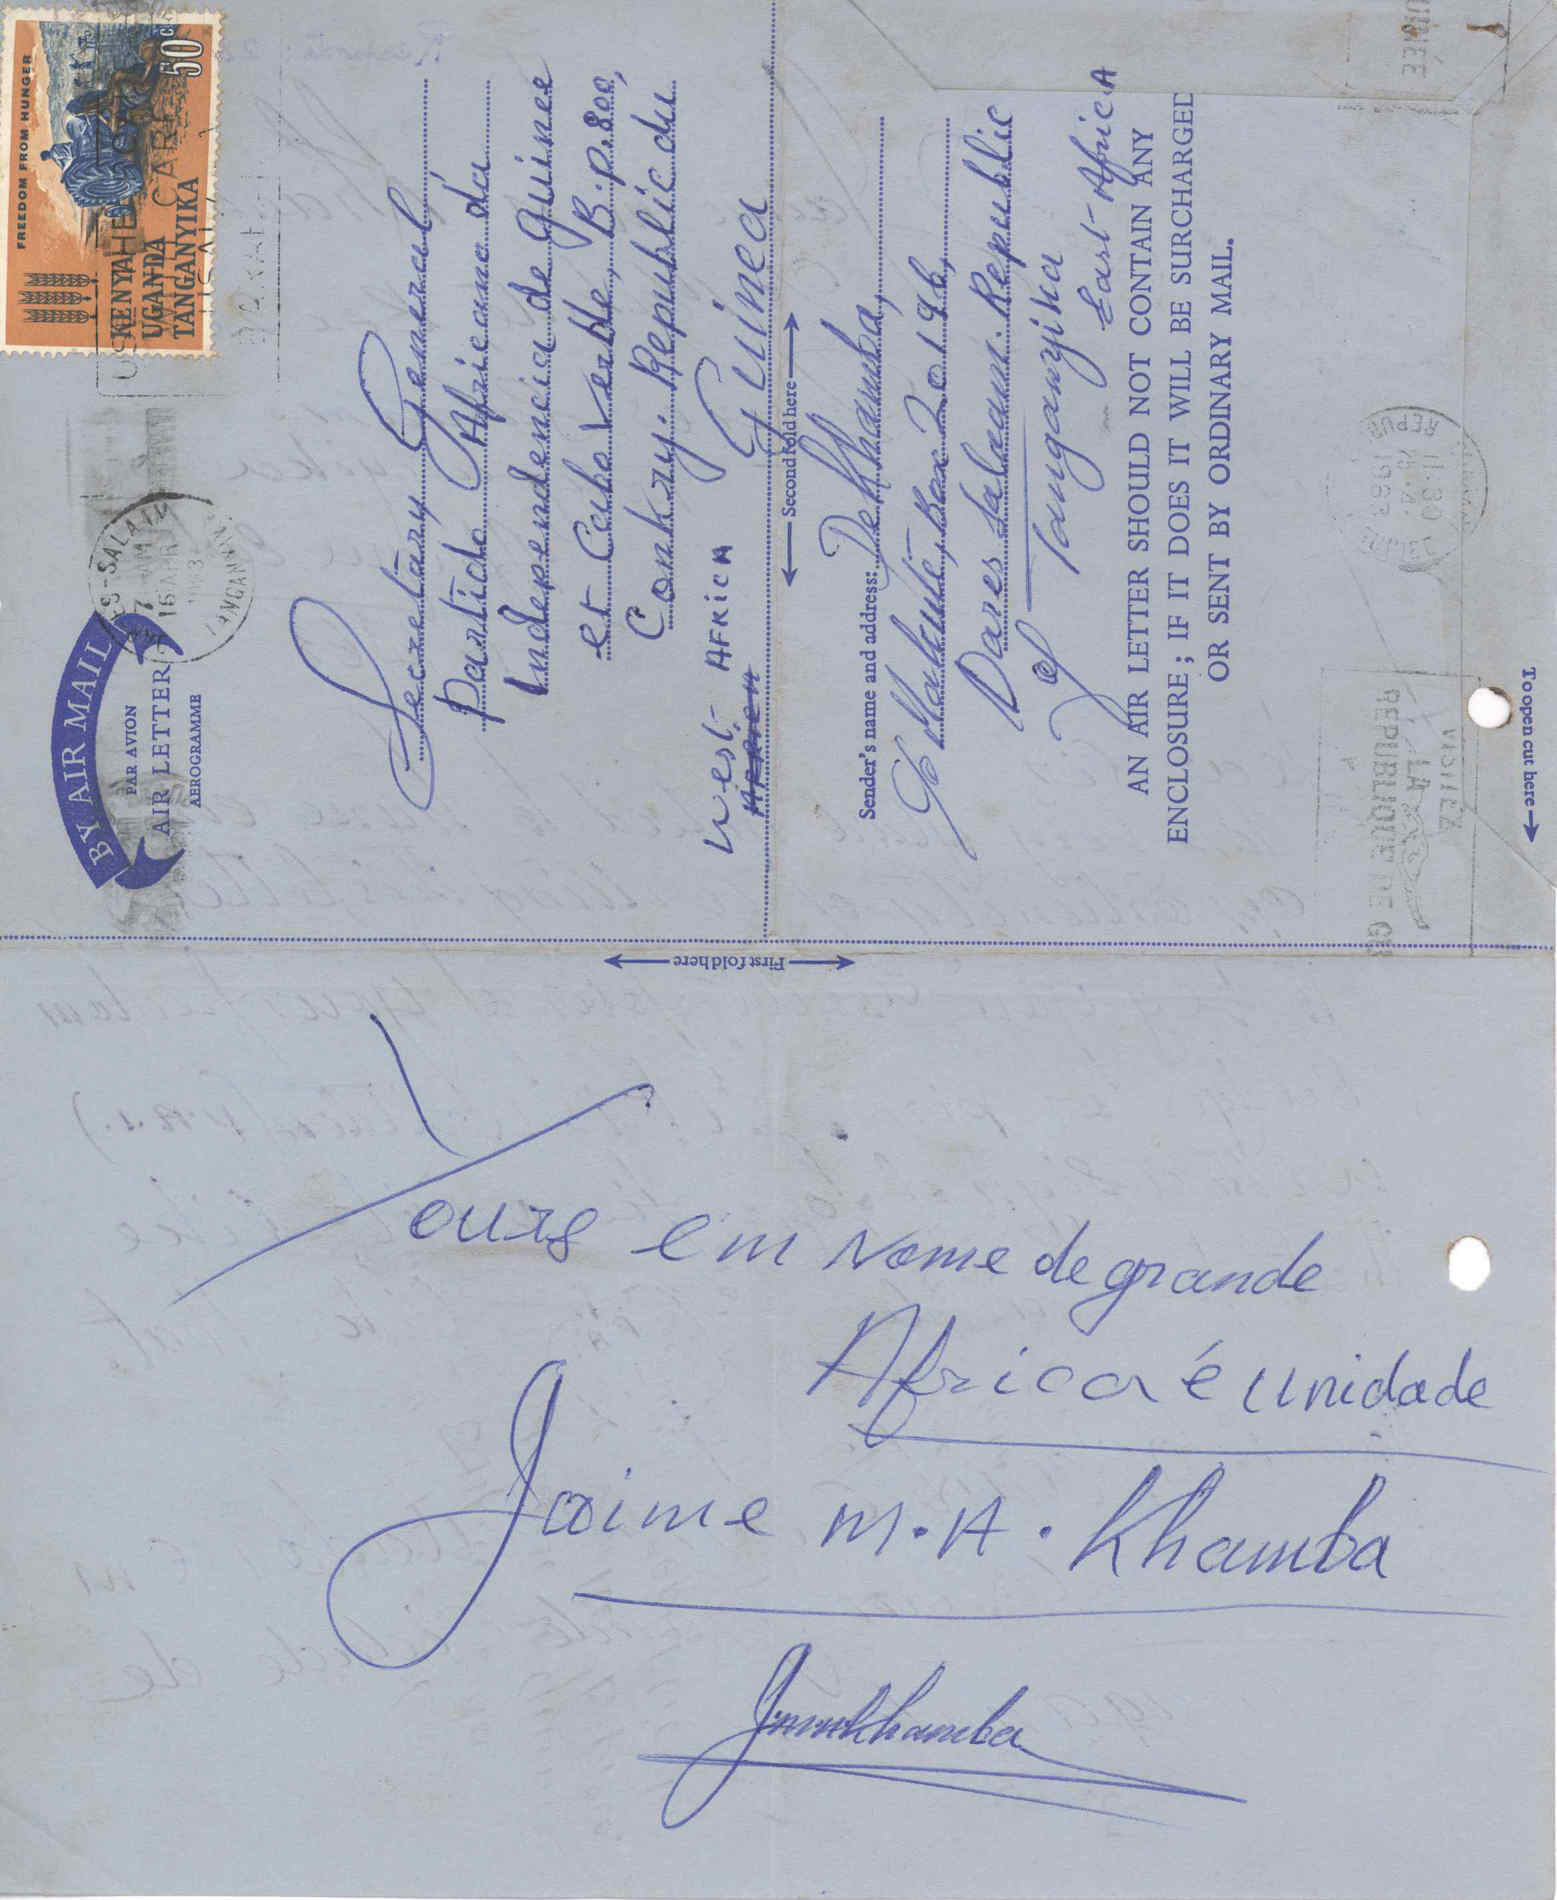 BY AIR MAIL
PAR AVION
AIR LETTER
AEROGRAMME
FREEDOM FROM HUNGER
50c
KENYA
UGANDA
TANGANYIKA
Secretary General
Partido Africano da
Independencia de Guinee
et Cabo Verde, B.P.800,
Conkry. Republic du
Guinea
West- AFRICA
Second fold here
Sender's name and address: De Khamba,
Box 20196,
Dares Salaam. Republic
of Tanganyika
East-AfricA
AN AIR LETTER SHOULD NOT CONTAIN ANY
ENCLOSURE; IF IT DOES IT WILL BE SURCHARGED
OR SENT BY ORDINARY MAIL.
VISITEZ
LA
REPUBLIQUE DE
To open cut here
First fold here
Yours em Nome de grande
Africa é unidade
Jaime M.A. Khamba